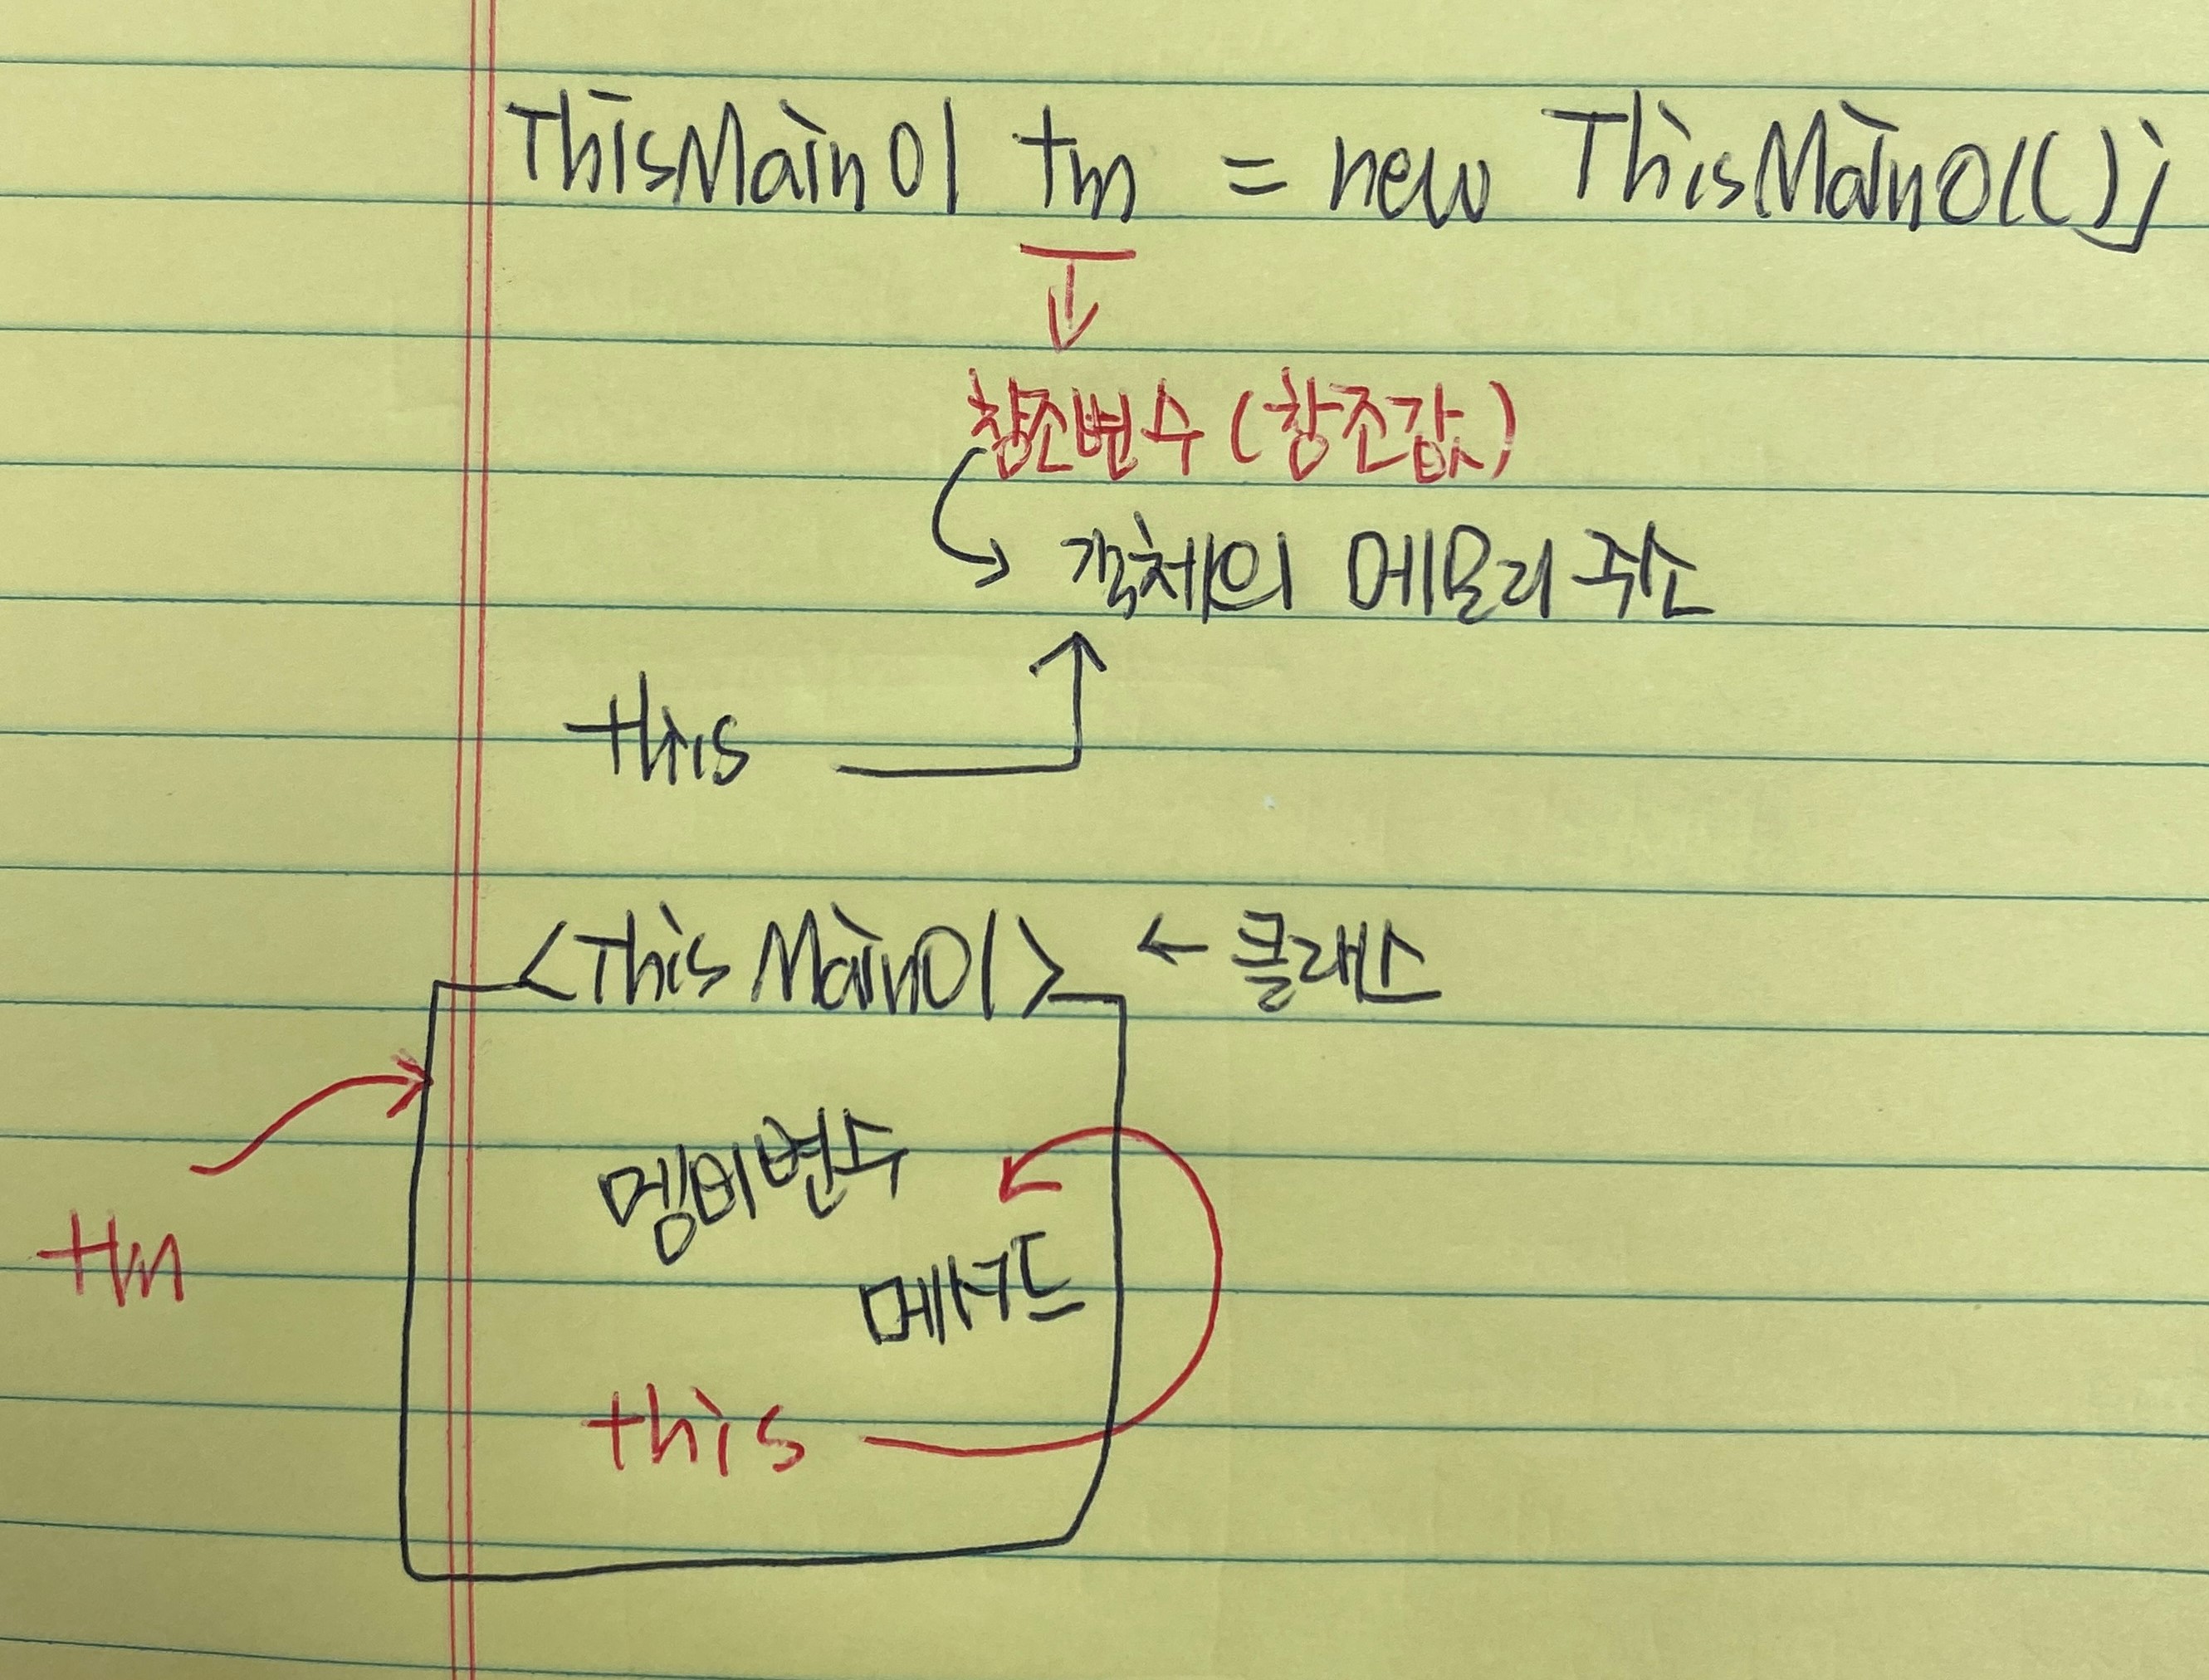 ThisMain01 tm = new ThisMain01();
참조변수 (참조값)
객체의 메모리 주소
this
<ThisMain01> ← 클래스
멤버변수
메서드
tm
this